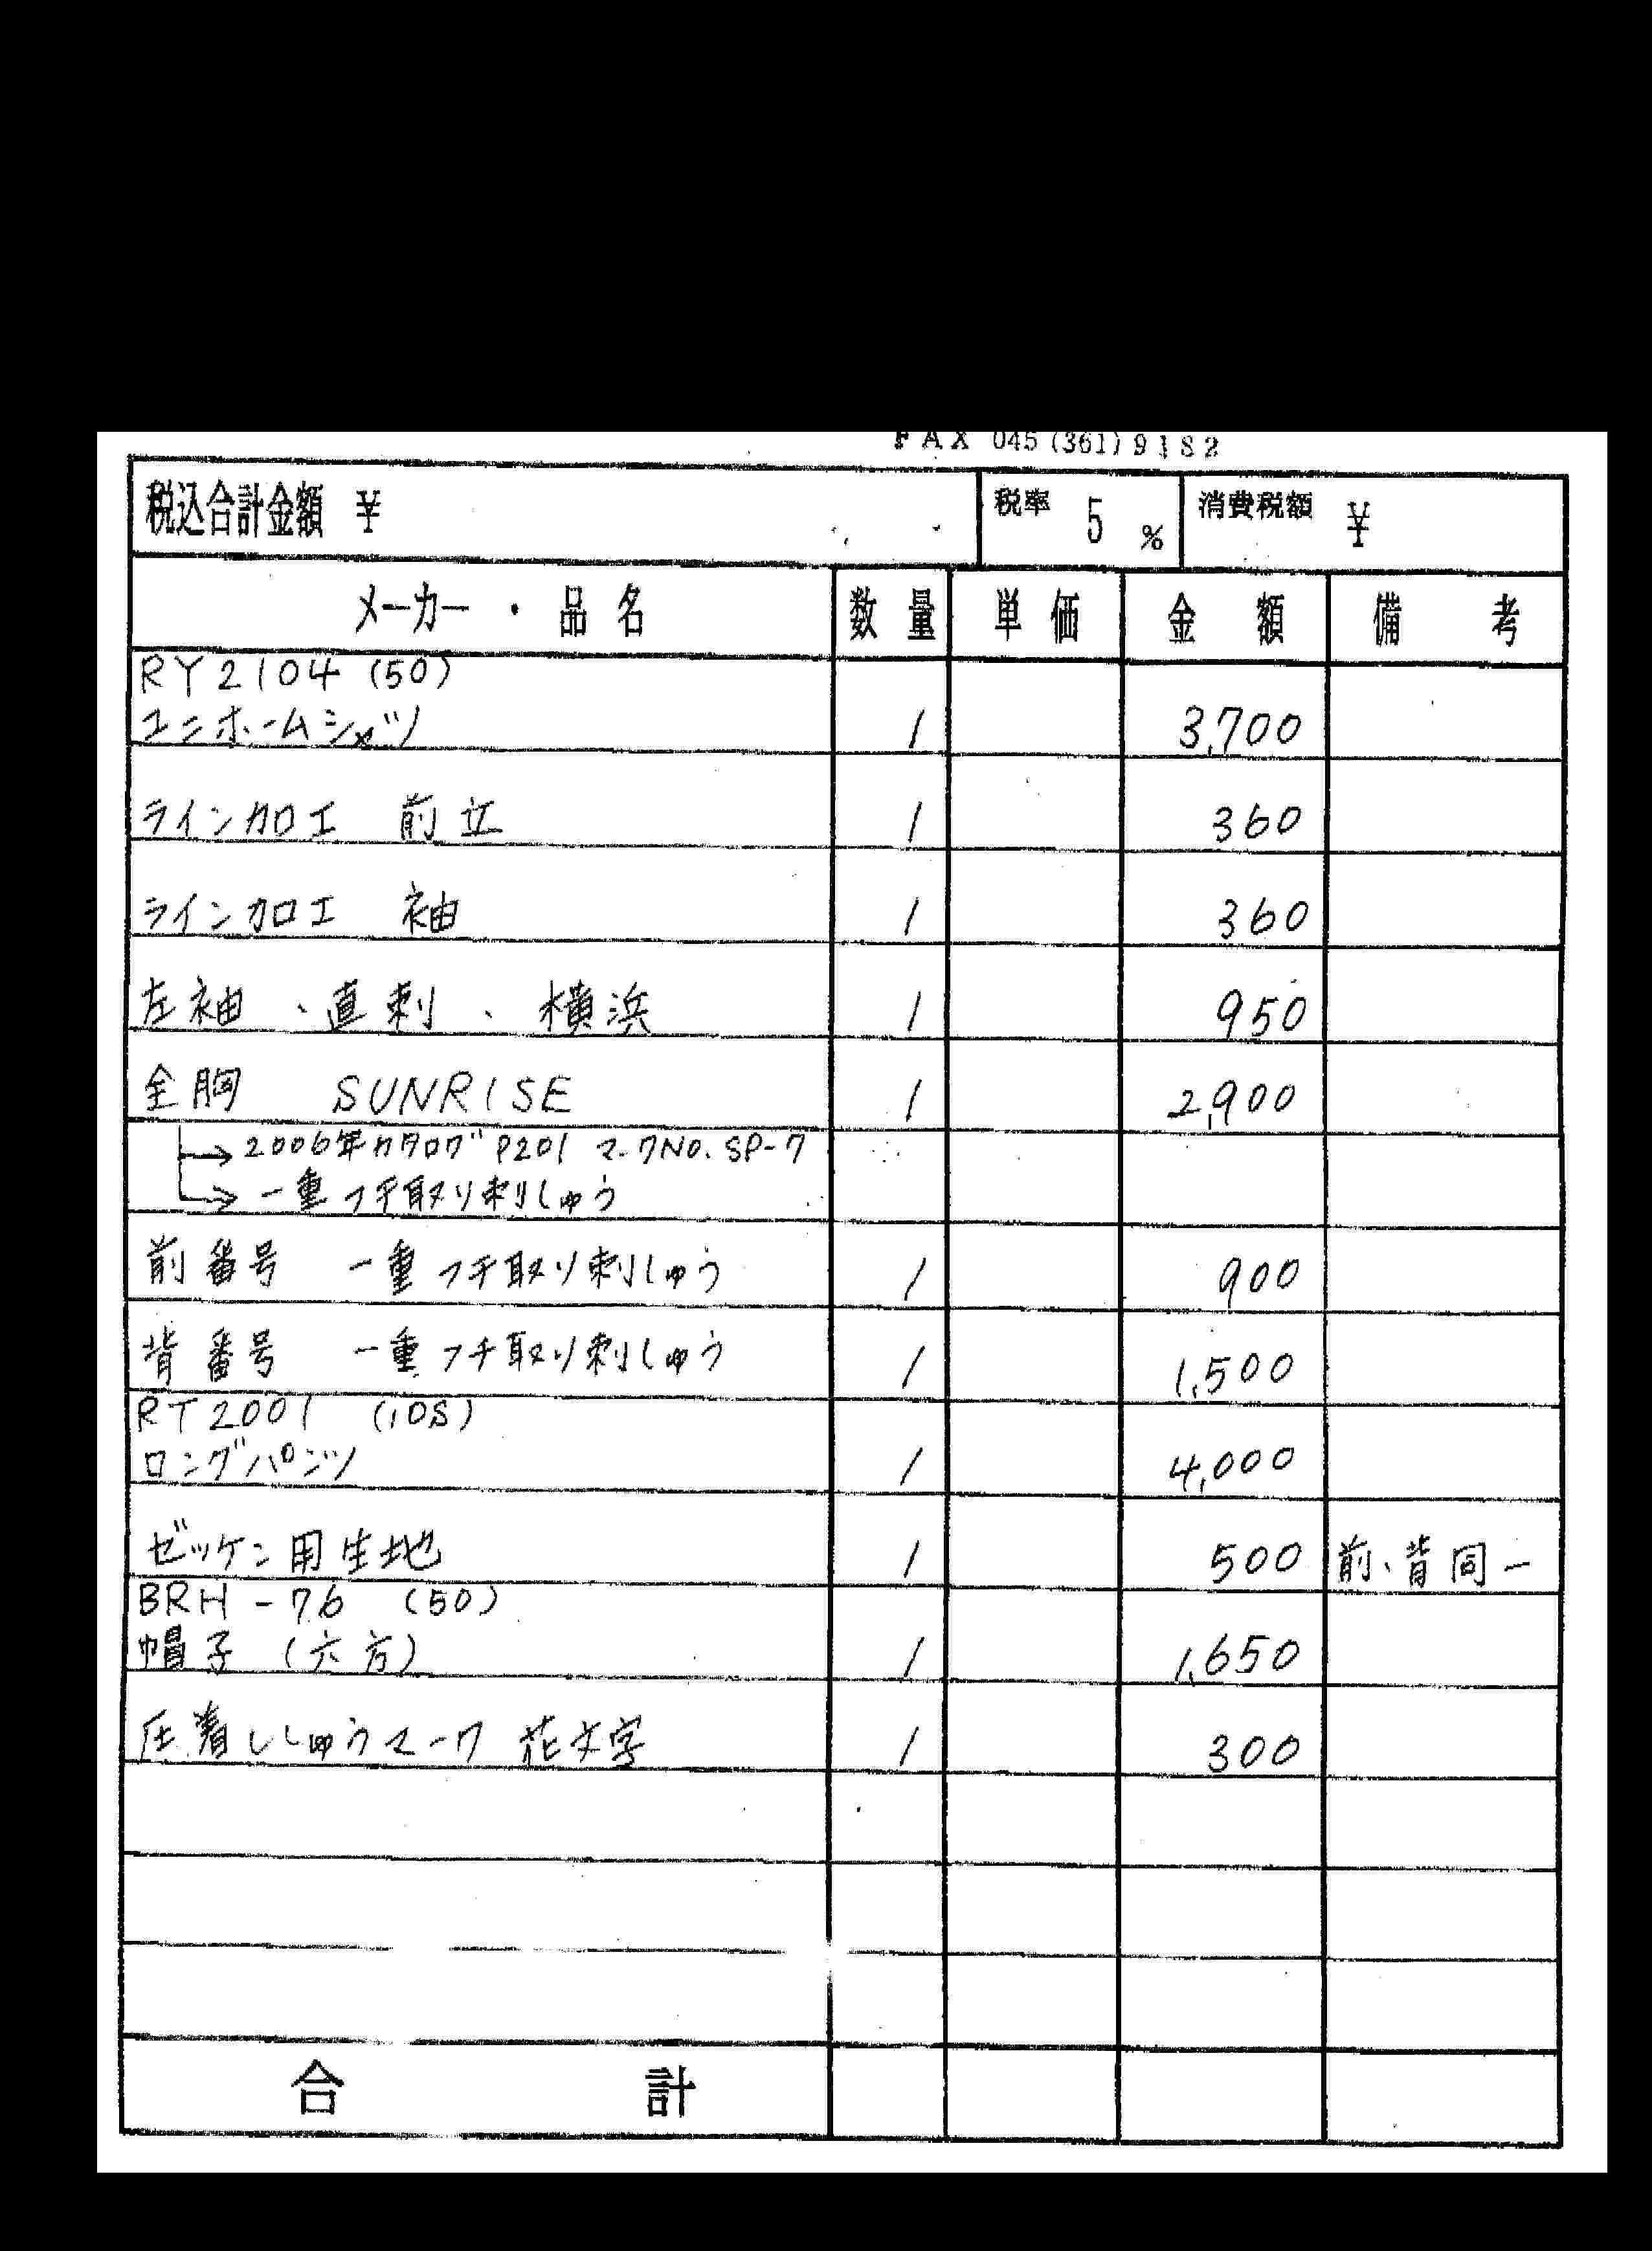 FAX 045 (361) 9182
税込合計金額 ¥ 税率 5 % 消費税額 ¥
メーカー・品名 数量 単価 金額 備考
RY2104 (50)
ユニホームシャツ 1 3,700
ライン加工 前立 1 360
ライン加工 袖 1 360
左袖、直刺、横浜 1 950
全胸 SUNRISE 1 2,900
→2006年カタログP201 マークNO. SP-7
→一重フチ取り刺しゅう
前番号 一重フチ取り刺しゅう 1 900
背番号 一重フチ取り刺しゅう 1 1,500
RT2001 (10S)
ロングパンツ 1 4,000
ゼッケン用生地 1 500 前、背同一
BRH-76 (50)
帽子 (六方) 1 1,650
圧着ししゅうマーク 花文字 1 300
合計